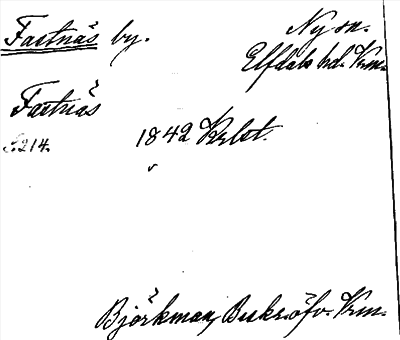 Fastnäs by. Ny sn.
Elfdals hd. Vrm.
Fastnäs
S. 214. 1842 Krlst.
Björkman, Beskr. öfv. Vrm.